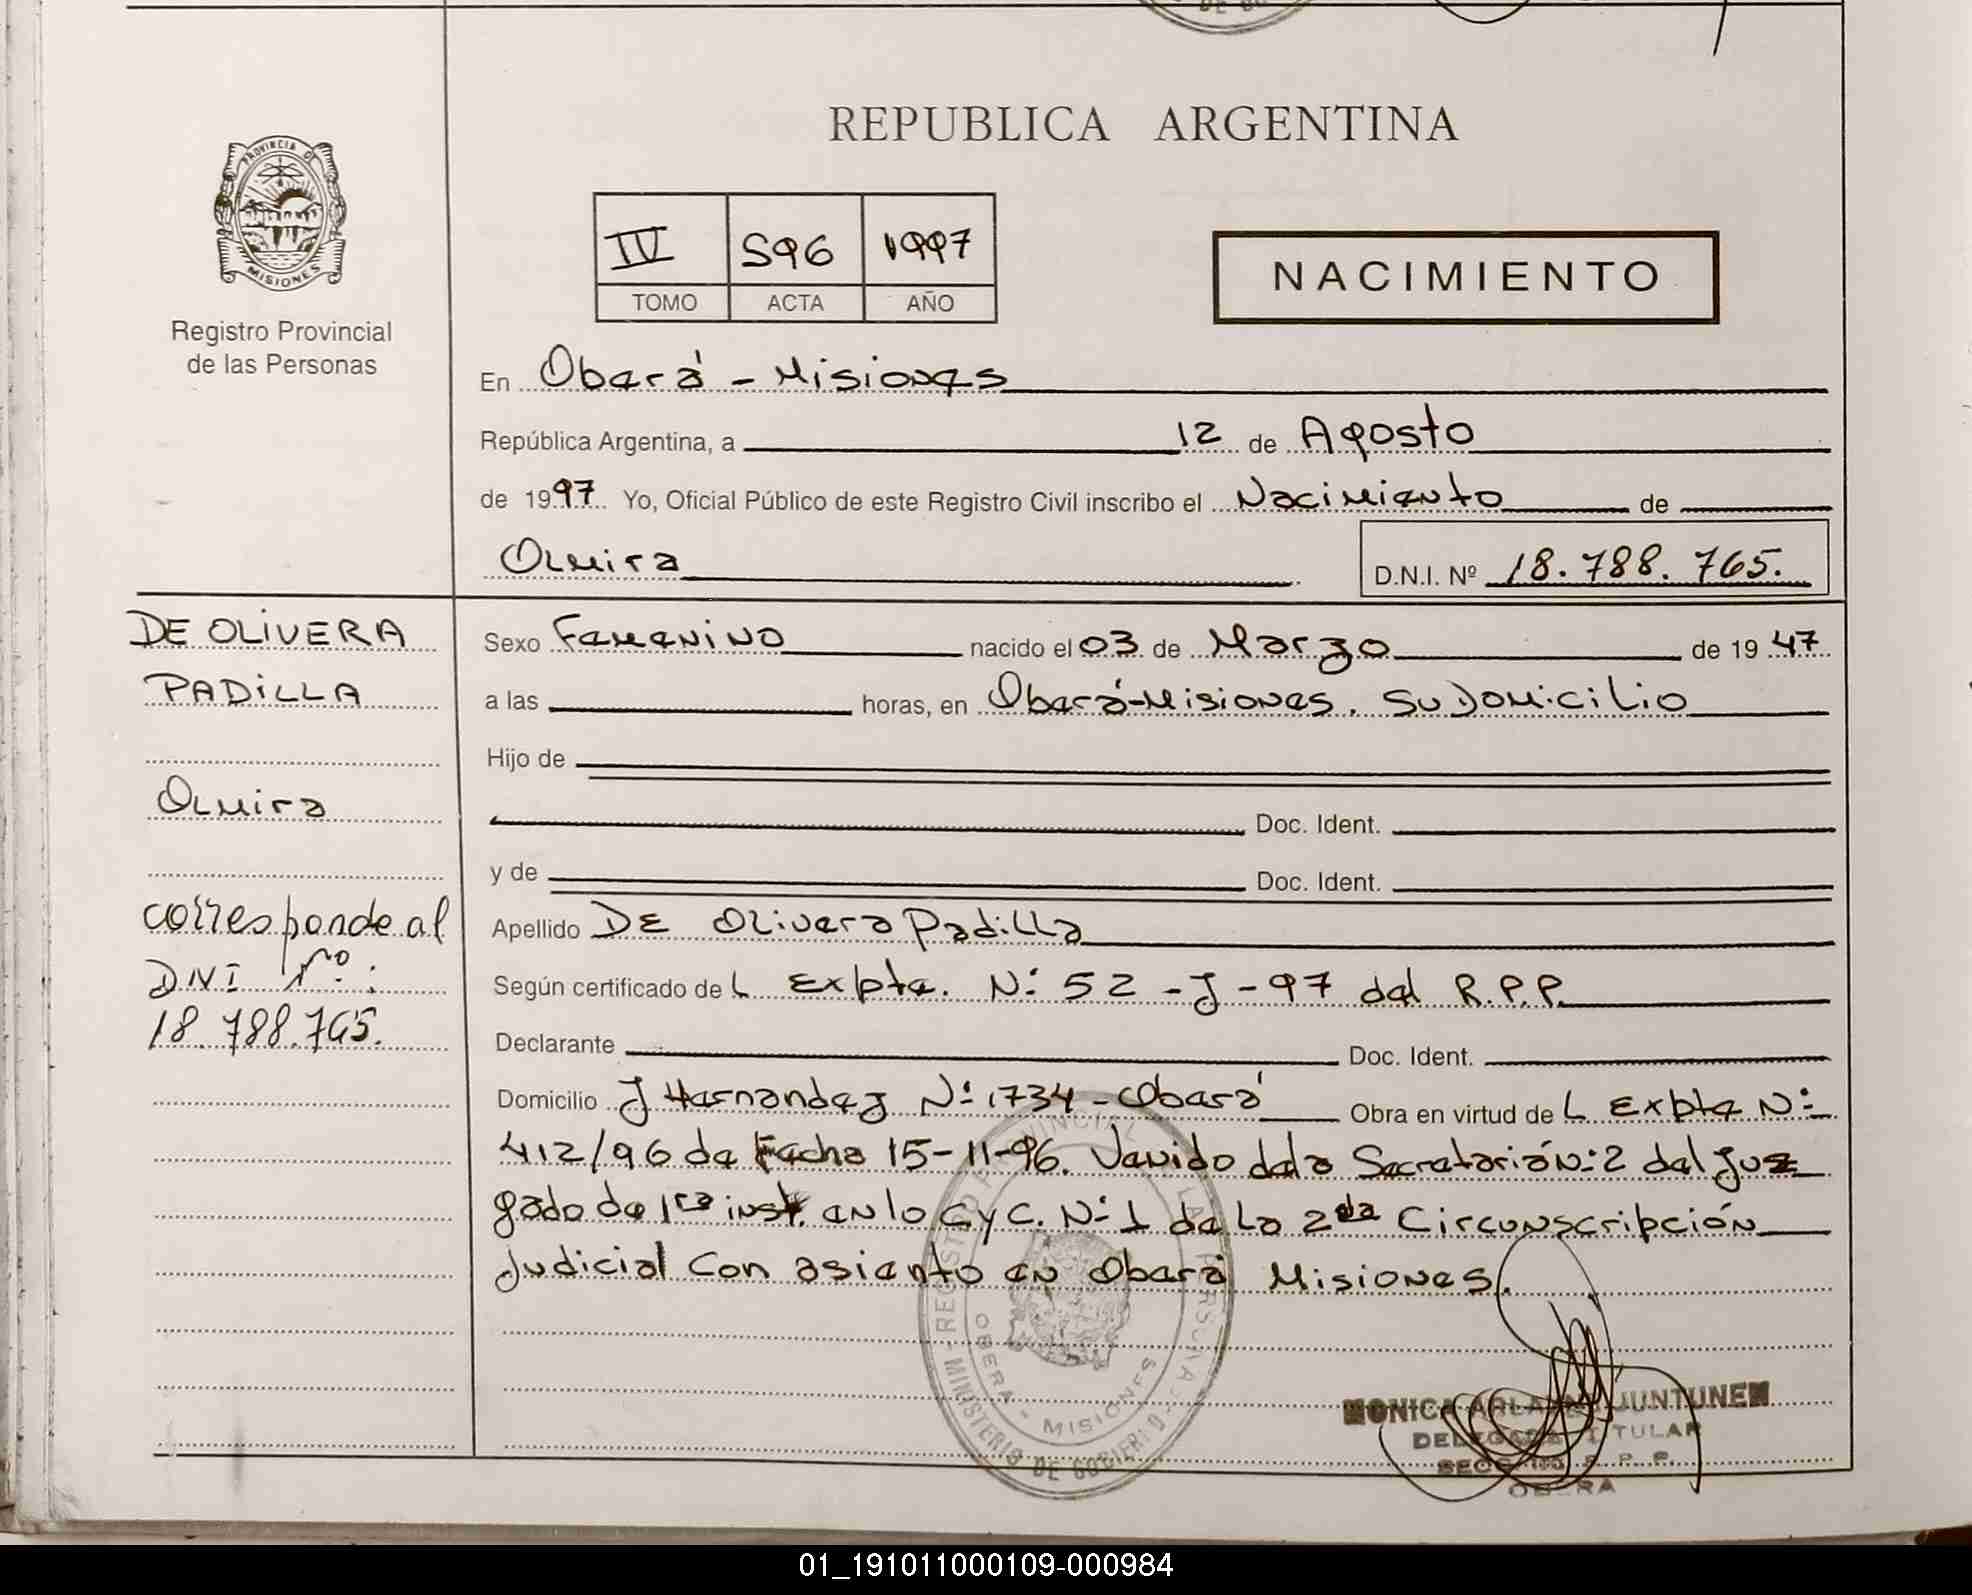 REPUBLICA ARGENTINA
PROVINCIA DE
MISIONES
Registro Provincial
de las Personas
IV 596 1997
TOMO ACTA AÑO
NACIMIENTO
En Oberá - Misiones
República Argentina, a 12 de Agosto
de 1997 Yo, Oficial Público de este Registro Civil inscribo el Nacimiento de
Olmira D.N.I. Nº 18.788.765.
DE OLIVERA
PADILLA
Olmira
corresponde al
DNI Nº:
18.788.765.
Sexo Femenino nacido el 03 de Marzo de 1947
a las horas, en Oberá-Misiones. Su Domicilio
Hijo de
Doc. Ident.
y de Doc. Ident.
Apellido DE Olivera Padilla
Según certificado del Expte. Nº 52 - J - 97 del R.P.P.
Declarante Doc. Ident.
Domicilio J Hernandez Nº 1734 - Oberá Obra en virtud del Expte Nº
412/96 de Fecha 15-11-96. Venido de la Secretaría Nº 2 del Juz
gado de 1ra inst. en lo C y C. Nº 1 de la 2da Circunscripción
Judicial Con asiento en Oberá Misiones.
REGISTRO PROVINCIAL DE LAS PERSONAS
MINISTERIO DE GOBIERNO
OBERA - MISIONES
MONICA ARLA JUNTUNEN
DELEGADA TITULAR
R. P. P.
OBERA
01_191011000109-000984